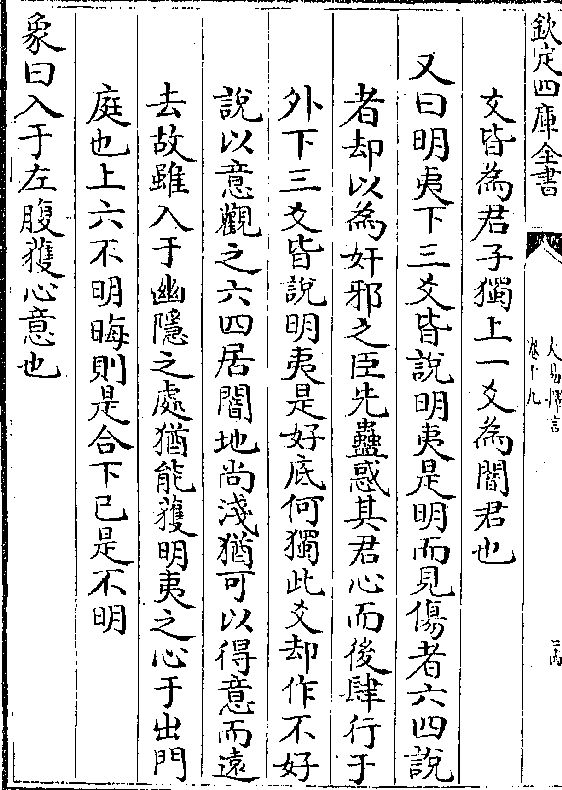 欽定四庫全書
大易擇言
卷十九
爻皆為君子獨上一爻為闇君也
又曰明夷下三爻皆說明夷是明而見傷者六四說
者却以為奸邪之臣先蠱惑其君心而後肆行于
外下三爻皆說明夷是好底何獨此爻却作不好
說以意觀之六四居闇地尚淺猶可以得意而遠
去故雖入于幽隱之處猶能獲明夷之心于出門
庭也上六不明晦則是合下已是不明
象曰入于左腹獲心意也